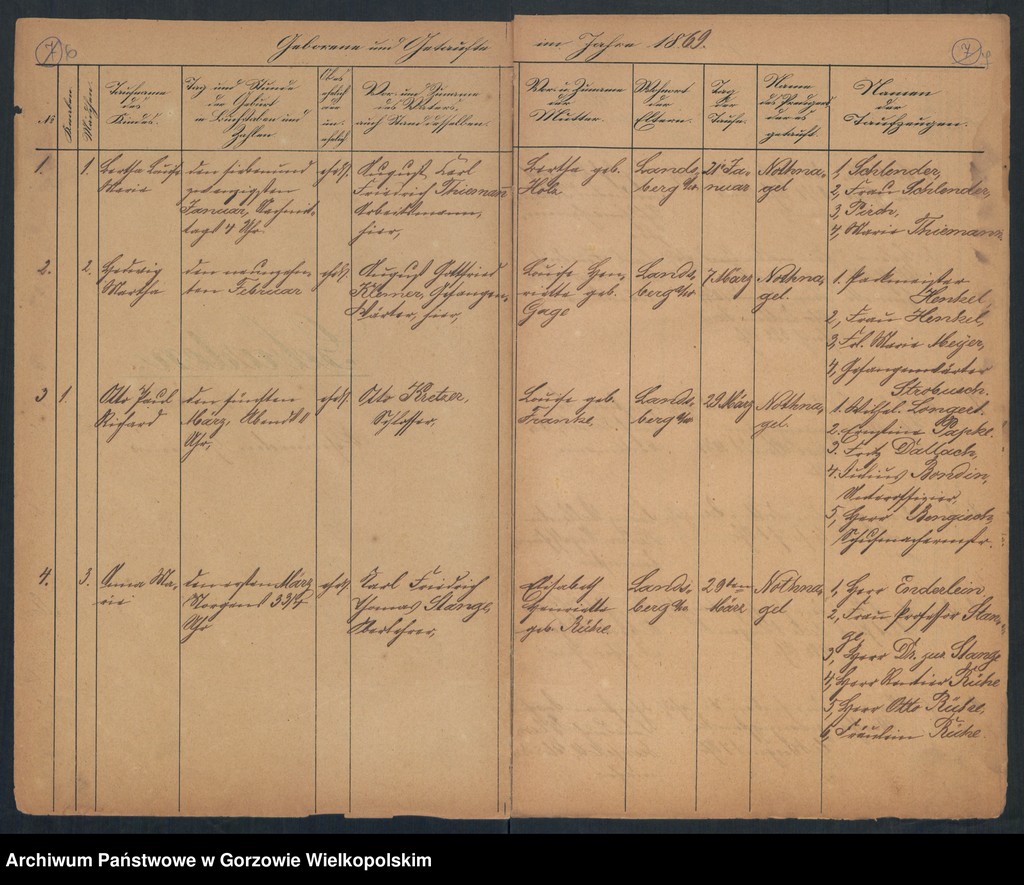 7 6
Geborene und Getaufte
im Jahre 1869.
7
No
Knaben.
Mädchen.
Taufname
des
Kindes.
Tag und Stunde
der Geburt
in Buchstaben und
Zahlen
Ob es
ehelich
oder
un-
ehelich
Vor- und Zuname
des Vaters,
auch Stand desselben.
Vor- u. Zuname
der
Mutter.
Wohnort
der
Eltern.
Tag
der
Taufe.
Name
des Predigers
der es
getauft.
Namen
der
Taufzeugen.
1.
1.
Bertha Louise
Marie
den sieben und
zwanzigsten
Januar, Nachmit-
tags 4 Uhr.
ehel.
August Carl
Friedrich Thiemann
Arbeitsmann,
hier,
Bertha geb.
Lands-
berg a/W
21t Ja-
nuar
Nothna-
gel
1, Schlender,
2, Frau Schlender,
3, Pirch,
4, Marie Thiemann
2.
2.
Hedwig
Martha
den neunzehn-
ten Februar
ehel.
August Gottfried
Klemer, Gefangen-
wärter, hier,
Louise Hen-
riette geb.
Gage
Lands-
berg a/W
7 März
Nothna-
gel.
1. Parkmeister
Henkel,
2, Frau Henkel,
3, Frl. Marie Meyer,
4, Gefangenwärter
Strobusch.
3
1.
Otto Paul
Richard
den fünften
März, Abends
Uhr,
ehel.
Otto Kretzer,
Schlosser,
Louise geb.
Franke,
Lands-
berg a/W
29 März
Nothna-
gel.
1. Wilh. Longert.
2. Ernstine Papke.
3. Fritz Dallach,
4. Julius Bondin,
Unteroffizier,
5, Herr Bengisch,
Schuhmachermstr.
4.
3.
Anna Ma-
rie
den ersten März
Morgens 3 3/4
Uhr
ehel.
Karl Friedrich
Thomas Stange,
Oberlehrer,
Elisabeth
Henriette
geb. Rühe.
Lands-
berg a/W
29ten
März
Nothna-
gel
1, Herr Enderlein,
2, Frau Professor Stan-
ge,
3, Herr Dr. jur Stange
4, Herr Rentier Rühe
5, Herr Otto Rühe,
6, Fräulein Rühe.
Archiwum Państwowe w Gorzowie Wielkopolskim